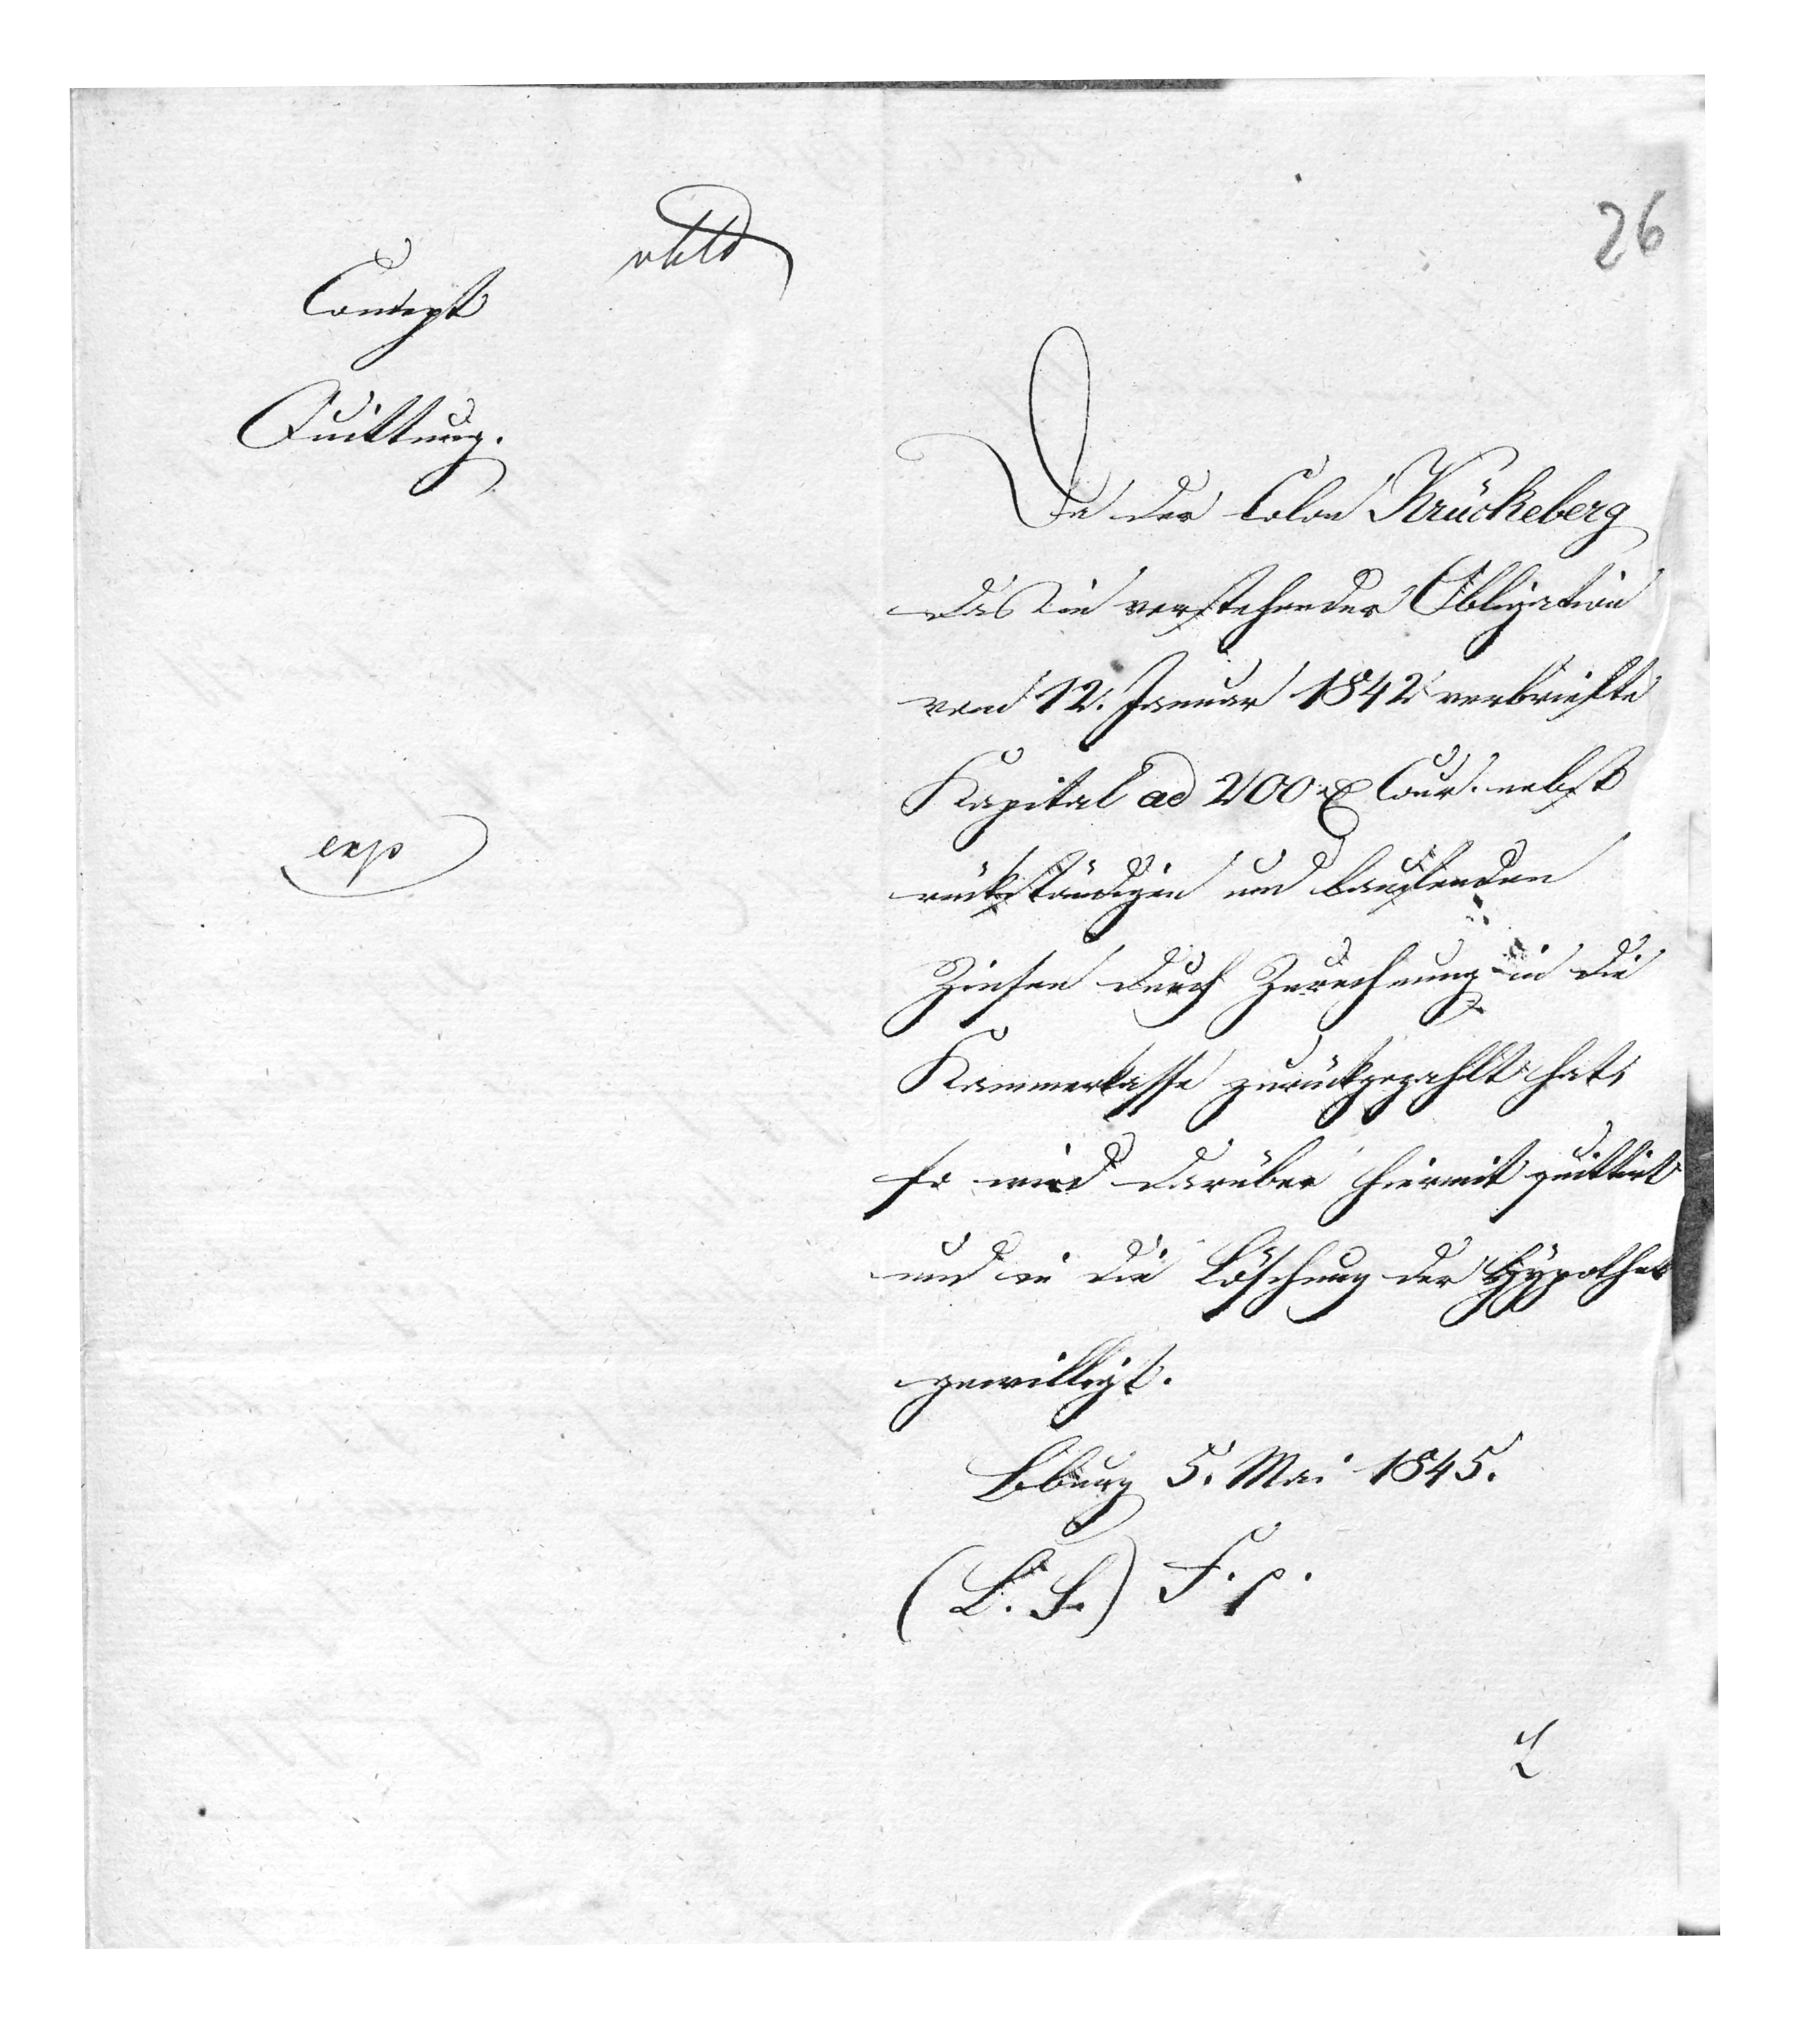 26
Concept
Quittung.
Da der Colon Krückeberg
das in vorstehender Obligation
vom 12. Januar 1842 verbriefte
Kapital ad 200 rl Cour. nebst
rückständigen und laufenden
Zinsen durch Zurechnung in die
Kammerkasse zurückgezahlt hat,
exp
so wird darüber hiermit quittirt
und in die Löschung der Hypothek
gewilligt.
Bburg 5. Mai 1845.
(L. S.) F. p.